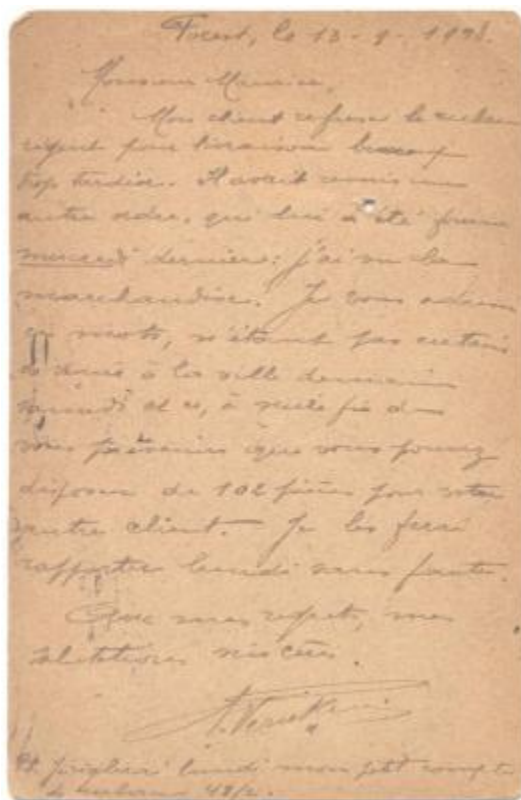 Forest, le 13-9-1898.
Monsieur Maurice,
Mon client refuse le ruban
pour livraison beaucoup
trop tardive. Il avait remis un
autre ordre, qui lui a été fourni
mercredi dernier; j'ai vu la
marchandise. Je vous
ces mots, n'étant pas certain
à la ville demain
samedi et ce, à seule fin de
vous prévenir que vous pouvez
disposer de 102 pièces pour votre
autre client. Je les ferai
rapporter lundi sans faute.
Avec mes regrets, mes
salutations sincères.
lundi mon petit compte
48/2.